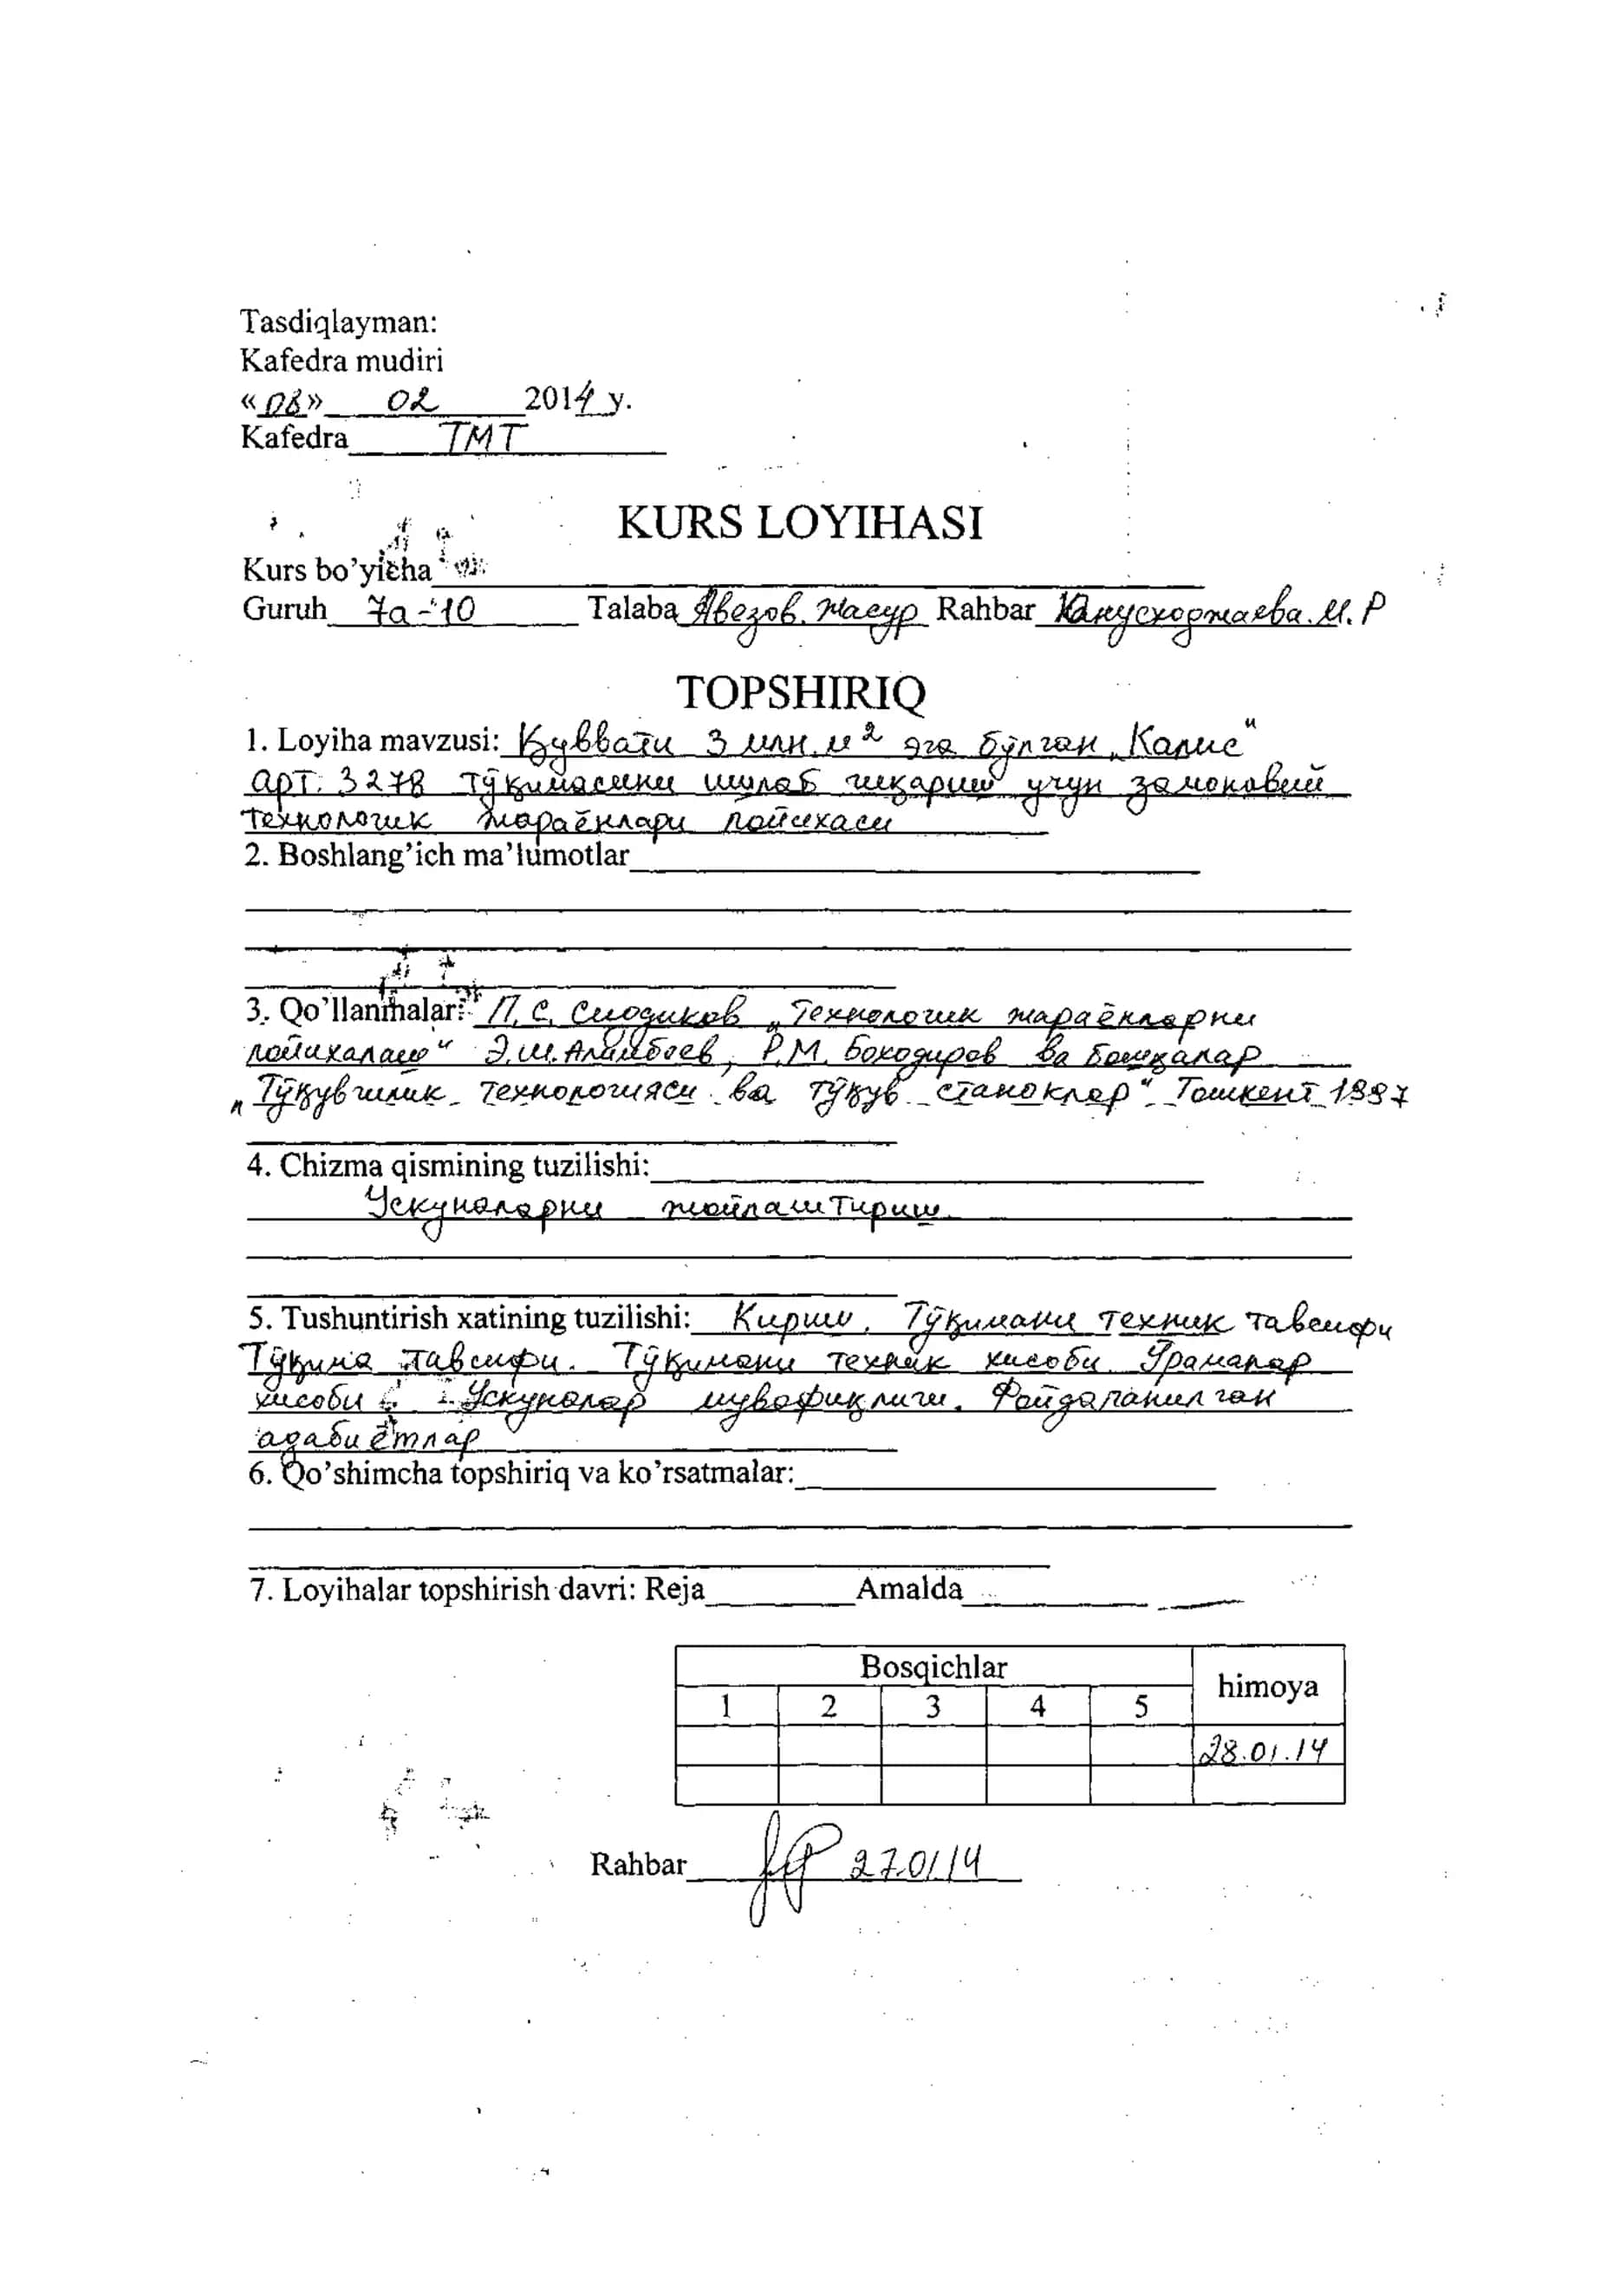 Tasdiqlayman:
Kafedra mudiri
«08» 02 2014 y.
Kafedra ТМТ
KURS LOYIHASI
Kurs bo'yicha
Guruh 7а-10 Talaba Авезов. Жасур Rahbar Юнусходжаева. М. Р
TOPSHIRIQ
1. Loyiha mavzusi: Қуввати 3 млн. м² эга бўлган „Калис"
арт. 3278 тўқимасини ишлаб чиқариш учун замоновий
технологик жараёнлари лойихаси
2. Boshlang'ich ma'lumotlar
3. Qo'llanmalar: П. С. Сиодиков „Технологик жараёнларни
лойихалаш" Э.Ш. Алимбоев, Р.М. Боходиров ва бошқалар
„Тўқувчилик технологияси ва тўқув станоклар" Тошкент 1987
4. Chizma qismining tuzilishi:
Ускуналарни жойлаштириш.
5. Tushuntirish xatining tuzilishi: Кириш. Тўқимани техник тавсифи
Тўқима тавсифи. Тўқимани техник хисоби. Ўрамалар
хисоби. Ускуналар мувофиқлиги. Фойдаланилган
адабиётлар
6. Qo'shimcha topshiriq va ko'rsatmalar:
7. Loyihalar topshirish davri: Reja Amalda
Bosqichlar himoya
1 2 3 4 5
28.01.14
Rahbar 27.01.14